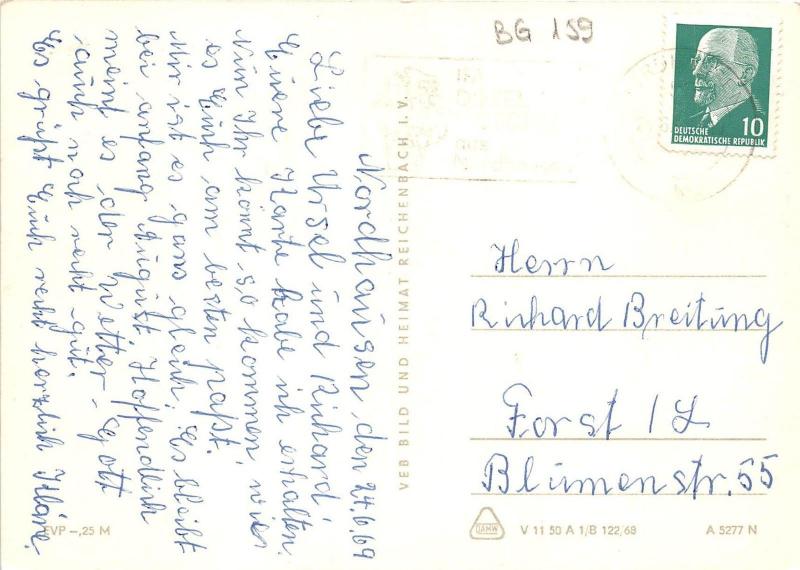 BG 159
10
DEUTSCHE
DEMOKRATISCHE REPUBLIK
Nordhausen, den 24.6.69
Liebe Ursel und Richard!
Euere Karte habe ich erhalten.
Nun Ihr könnt so kommen, wie
es Euch am besten paßt.
Mir ist es ganz gleich. Es bleibt
bei anfang August. Hoffendlich
meint es der Wetter-Gott
auch noch recht gut.
Es grüßt Euch recht herzlich Kläre.
VEB BILD UND HEIMAT REICHENBACH I. V.
Herrn
Richard Breitung
Forst / L
Blumenstr. 55
EVP -,25 M
DAMW
V 11 50 A 1/B 122/68
A 5277 N